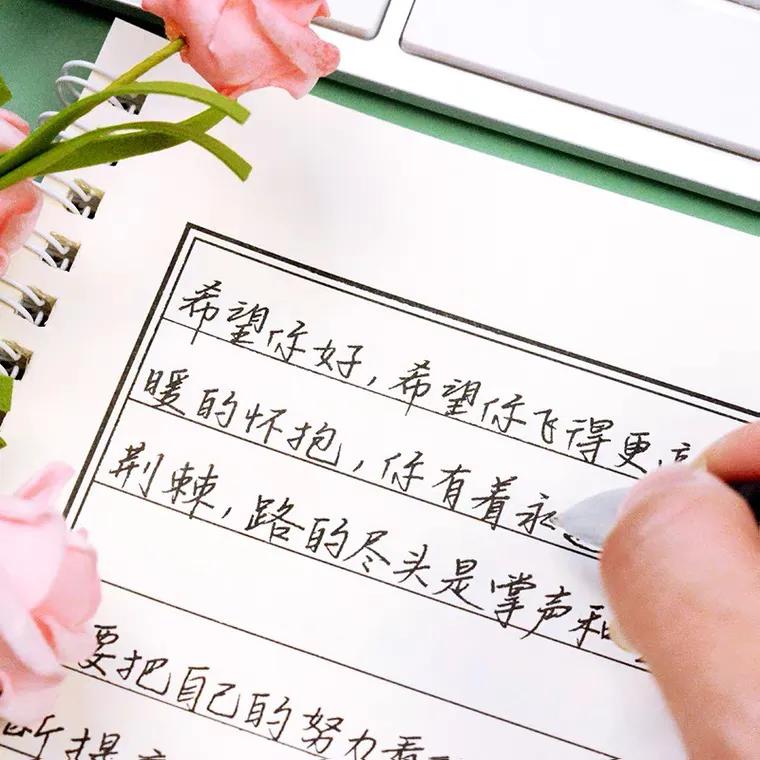 希望你好，希望你飞得更
暖的怀抱，你有着永
荆棘，路的尽头是掌声和
要把自己的努力看
断提高